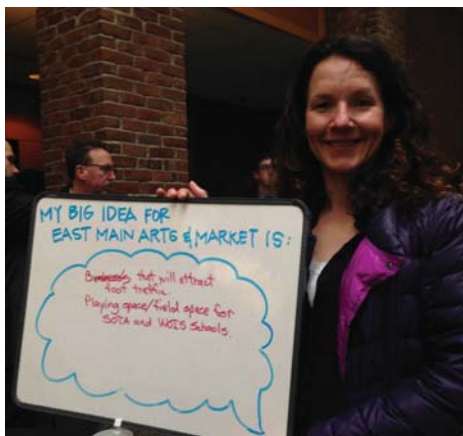 MY BIG IDEA FOR
EAST MAIN ARTS & MARKET IS:
that will attract
foot traffic.
Playing space/field space for
SOTA and WOIS Schools.